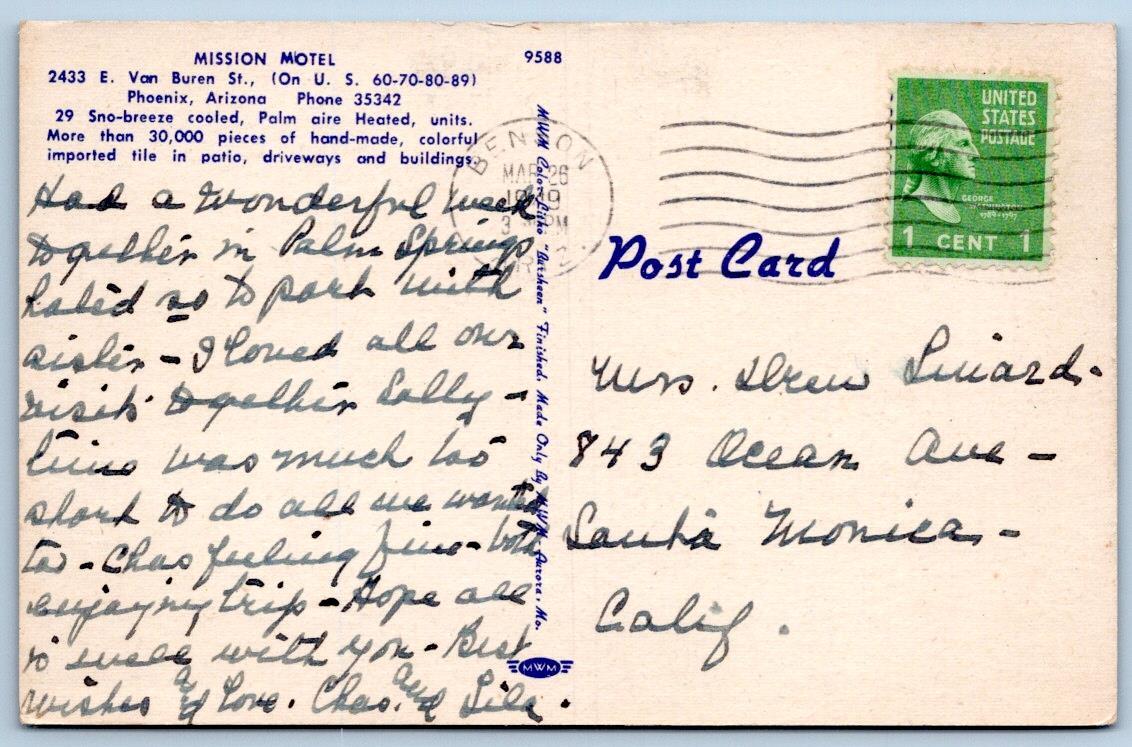 MISSION MOTEL
2433 E. Van Buren St., (On U. S. 60-70-80-89)
Phoenix, Arizona Phone 35342
29 Sno-breeze cooled, Palm aire Heated, units.
More than 30,000 pieces of hand-made, colorful
imported tile in patio, driveways and buildings.
9588
Had a wonderful week
together in Palm Springs
hated so to part with
sister - I loved all our
visit together Sally -
time was much too
short to do all we wanted
to - Chas feeling fine - both
enjoying trip - Hope all
is well with you - Best
wishes and Love. Chas. and Lila.
MWM Color-Litho "Aursheen" Finished. Made Only By MWM, Aurora, Mo.
MWM
BENSON
MAR 26
PM
UNITED
STATES
POSTAGE
GEORGE
WASHINGTON
1789-1797
1 CENT 1
Post Card
Mrs. Drew
843 Ocean Ave -
Santa Monica -
Calif.